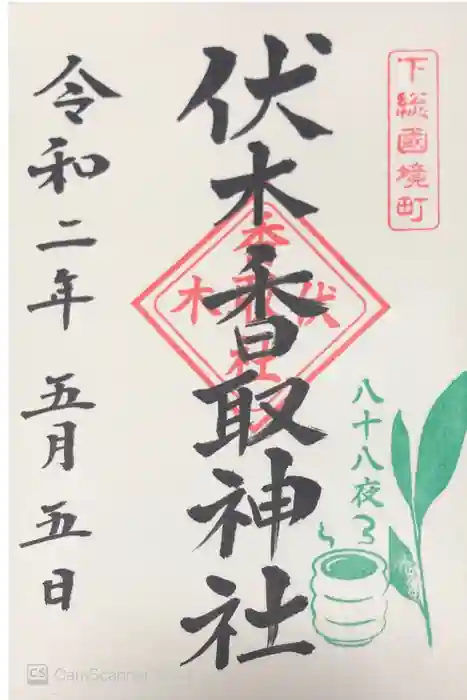 下総國境町
伏木香取神社
八十八夜
令和二年 五月 五日
伏木
CS CamScanner